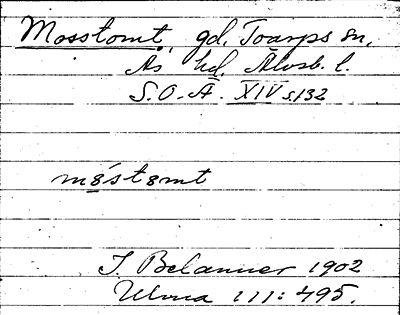 Mosstomt, gd, Toarps sn,
Ås hd. Älvsb. l.
S.O.Ä. XIV s.132
mo̱ʹstomt
J. Belanner 1902
Ulvna 111: 495.